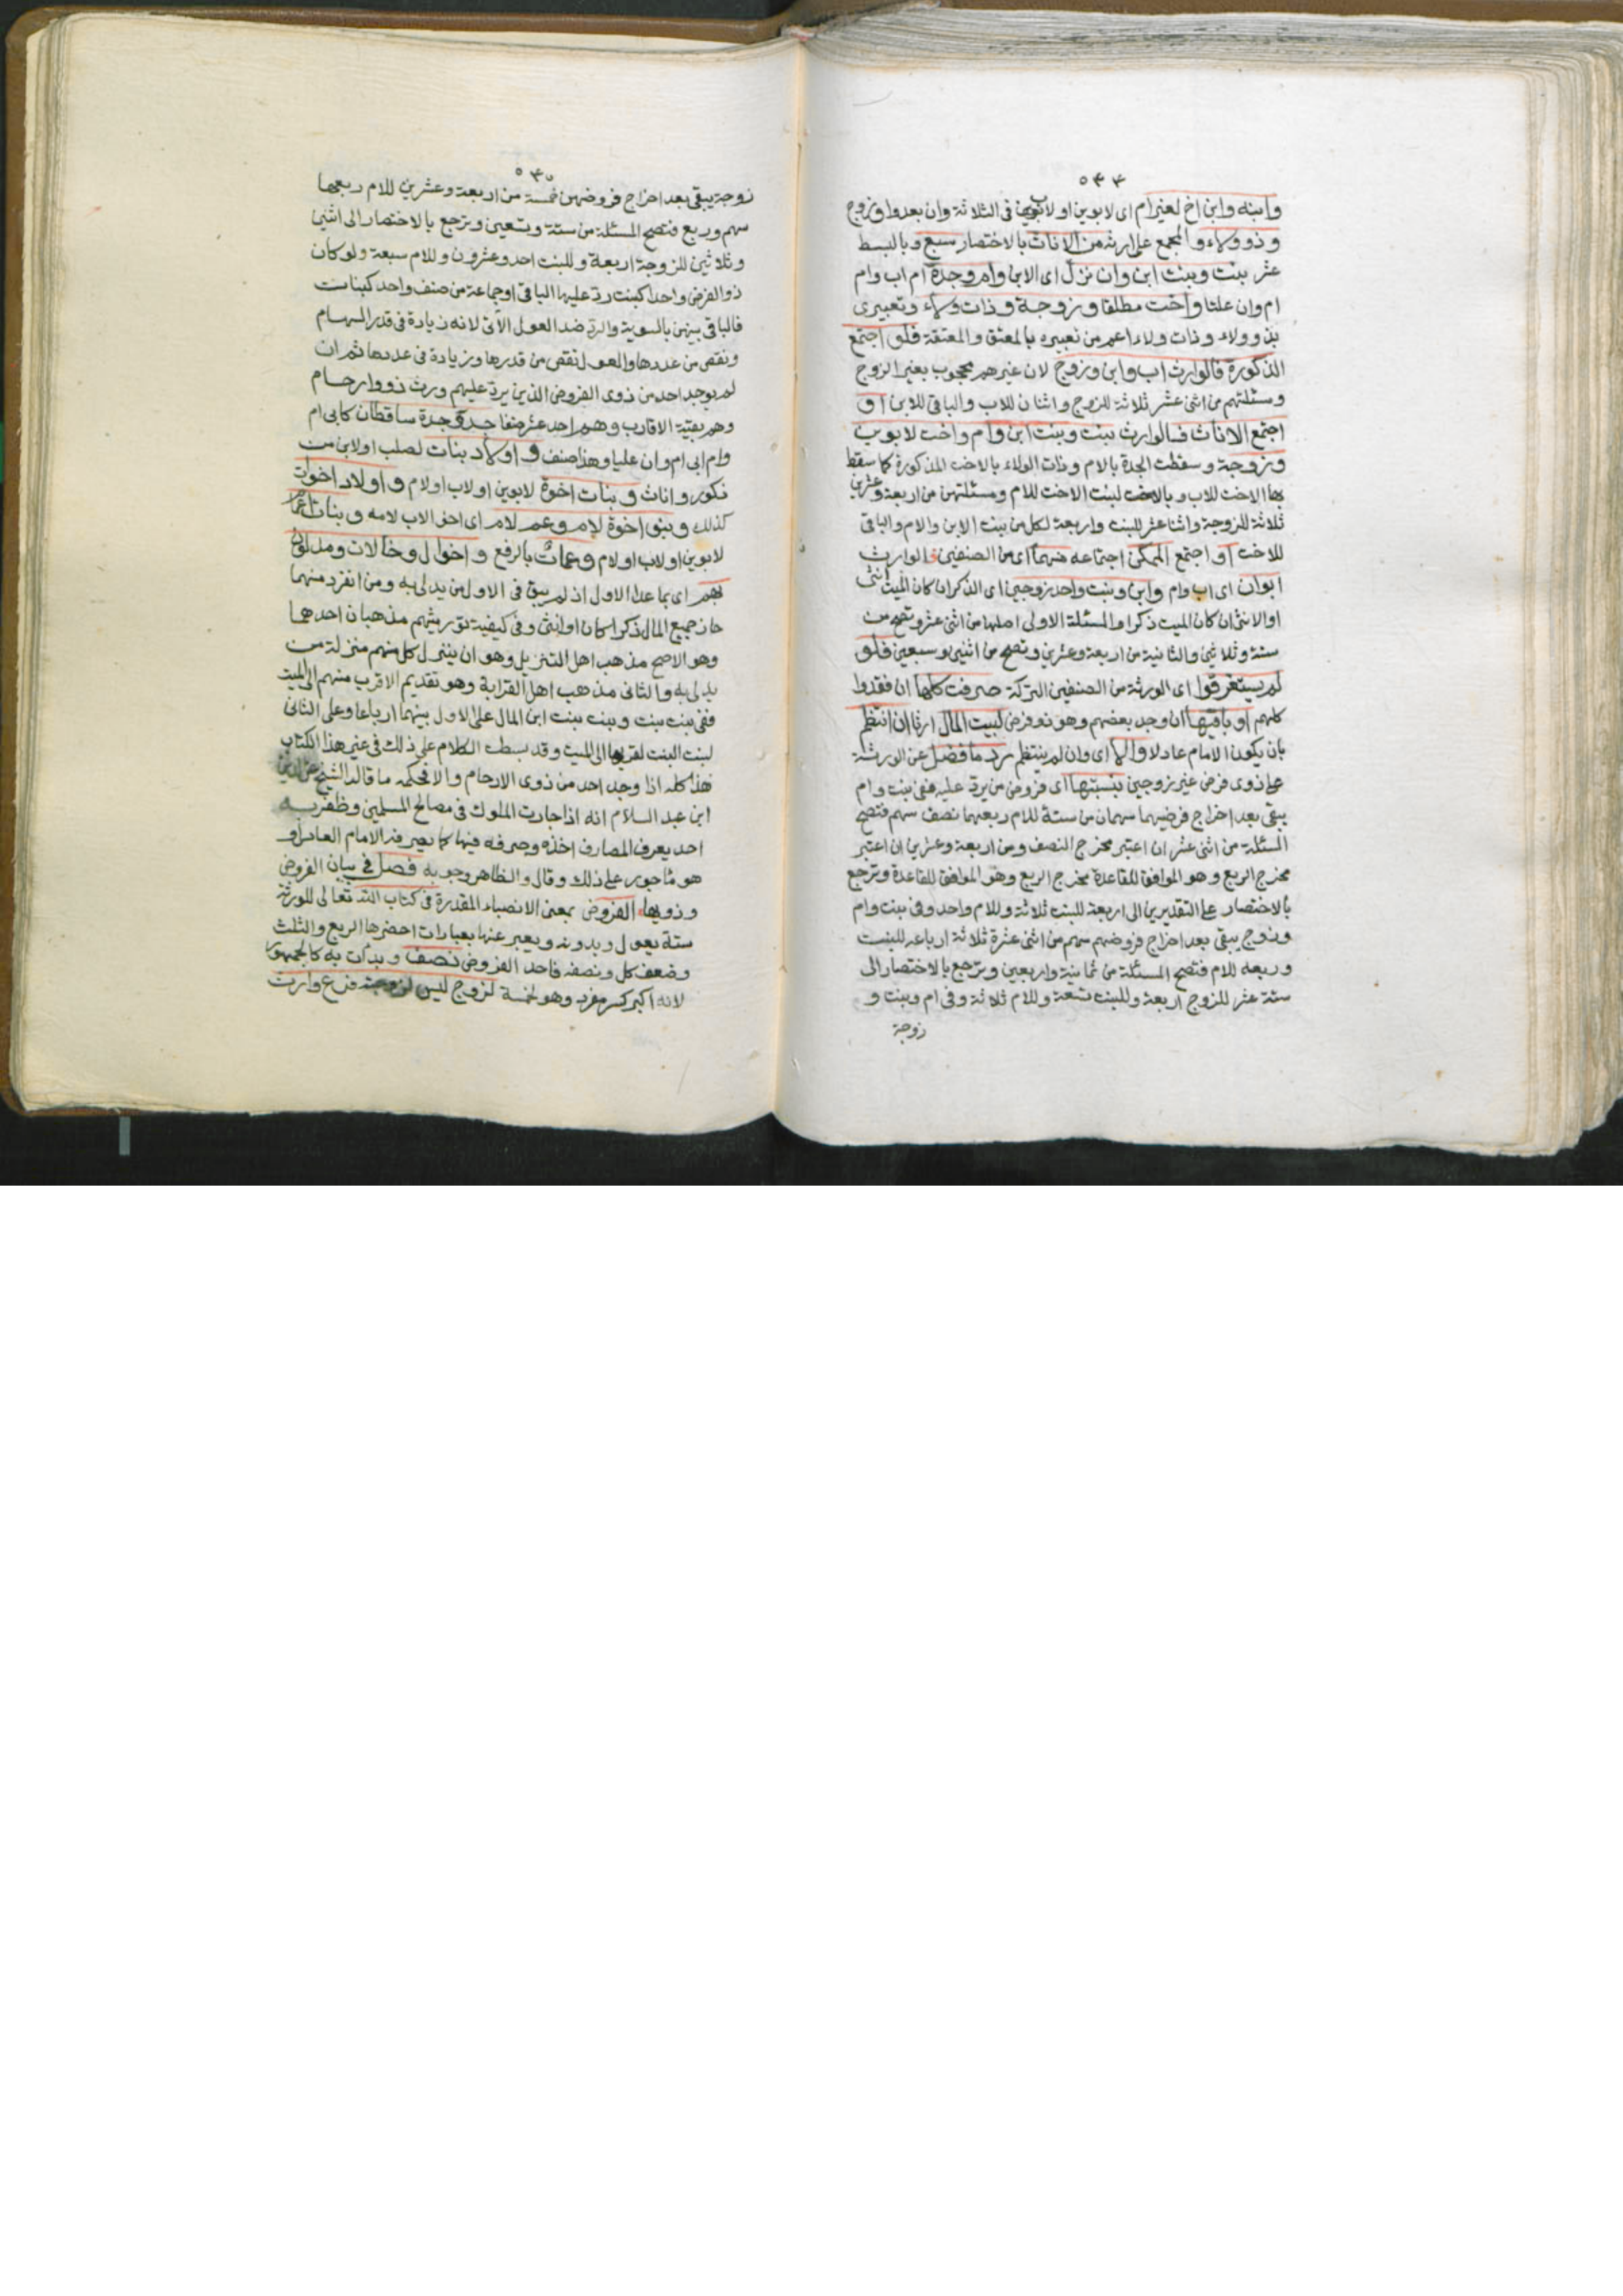 ٥٤٤
وابنه وابن اخ لغير ام اى لابوين او لاب في الثلاثة وان بعدوا وزوج
وذو ولاء والمجمع على ارثه من الاناث بالاختصار سبع وبالبسط
عشر بنت وبنت ابن وان نزل اى الابن وام وجدة ام اب وام
ام وان علتا واخت مطلقا وزوجة وذات ولاء وتعبيرى
بذو ولاء وذات ولاء اعم من تعبيره بالمعتق والمعتقة فلو اجتمع
الذكورة فالوارث اب وابن وزوج لان غيرهم محجوب بغير الزوج
ومسئلتهم من اثنى عشر ثلاثة للزوج واثنان للاب والباقى للابن او
اجتمع الاناث فالوارث بنت وبنت ابن وام واخت لابوين
وزوجة وسقطت الجدة بالام وذات الولاء بالاخت المذكورة كما سقط
بها الاخت للاب وبالبنت الاخت للام ومسئلتهن من اربعة وعشرين
ثلاثة للزوجة واثنا عشر للبنت واربعة لكل من بنت الابن والام والباقى
للاخت او اجتمع الممكن اجتماعه منهما اى من الصنفين فالوارث
ابوان اى اب وام وابن وبنت واحد زوجين اى الذكر ان كان الميت انثى
او الانثى ان كان الميت ذكرا والمسئلة الاولى اصلها من اثنى عشر وتصح من
ستة وثلاثين والثانية من اربعة وعشرين وتصح من اثنين وسبعين فلو
لم يستغرقوا اى الورثة من الصنفين التركة صرفت كلها ان فقدوا
كلهم او باقيها ان وجد بعضهم وهو ذو فرض لبيت المال ارثا ان انتظم
بان يكون الامام عادلا والا اى وان لم ينتظم رد ما فضل عن الورثة
على ذوى فرض غير زوجين بنسبتها اى فروض من يرد عليه ففى بنت وام
يبقى بعد اخراج فرضيهما سهمان من ستة للام ربعهما نصف سهم فتصح
المسئلة من اثنى عشر ان اعتبر مخرج النصف ومن اربعة وعشرين ان اعتبر
مخرج الربع وهو الموافق للقاعدة مخرج الربع وهو الموافق للقاعدة وترجع
بالاختصار على التقديرين الى اربعة للبنت ثلاثة وللام واحد وفى بنت وام
وزوج يبقى بعد اخراج فروضهم سهم من اثنى عشرة ثلاثة ارباعه للبنت
وربعه للام فتصح المسئلة من ثمانية واربعين وترجع بالاختصار الى
ستة عشر للزوج اربعة وللبنت تسعة وللام ثلاثة وفى ام وبنت و
زوجة
٥٤٥
زوجة يبقى بعد اخراج فروضهن خمسة من اربعة وعشرين للام ربعها
سهم وربع فتصح المسئلة من ستة وتسعين وترجع بالاختصار الى اثنين
وثلاثين للزوجة اربعة وللبنت احد وعشرون وللام سبعة ولو كان
ذو الفرض واحدا كبنت رد عليها الباقى او جماعة من صنف واحد كبنات
فالباقى بينهن بالسوية والرد ضد العول الآتى لانه زيادة فى قدر السهام
ونقص من عددها والعول نقص من قدرها وزيادة فى عددها ثم ان
لم يوجد احد من ذوى الفروض الذين يرد عليهم ورث ذووا رحام
وهم بقية الاقارب وهم احد عشر صنفا جد وجدة ساقطان كابى ام
وام ابى ام وان عليا وهذا صنف واولاد بنات لصلب او لابن من
ذكور واناث وبنات اخوة لابوين او لاب او لام واولاد اخوات
كذلك وبنو اخوة لام وعم لام اى اخو الاب لامه وبنات اعمام
لابوين او لاب او لام وعمات بالرفع واخوال وخالات ومدلون
بهم اى بما عدا الاول اذ لم يبق فى الاول من يدلى به ومن انفرد منهما
حاز جميع المال ذكرا كان او انثى وفى كيفية توريثهم مذهبان احدهما
وهو الاصح مذهب اهل التنزيل وهو ان ينزل كل منهم منزلة من
يدلى به والثانى مذهب اهل القرابة وهو تقديم الاقرب منهم الى الميت
ففى بنت بنت وبنت بنت ابن المال على الاول بينهما ارباعا وعلى الثانى
لبنت البنت لقربها الى الميت وقد بسطت الكلام على ذلك فى غير هذا الكتاب
هذا كله اذا وجد احد من ذوى الارحام والا فحكمه ما قاله الشيخ عز الدين
ابن عبد السلام انه اذا جارت الملوك فى مصالح المسلمين وظفر به
احد يعرف المصارف اخذه وصرفه فيها كما يصرفه الامام العادل و
هو مأجور على ذلك وقال والظاهر وجوبه فصل فى بيان الفروض
وذويها الفروض بمعنى الانصباء المقدرة فى كتاب الله تعالى للورثة
ستة بعول وبدونه ويعبر عنها بعبارات اخصرها الربع والثلث
وضعف كل ونصفه فاحد الفروض نصف وبدأت به كالجمهور
لانه اكبر كسر مفرد وهو لخمسة لزوج ليس لزوجته فرع وارث